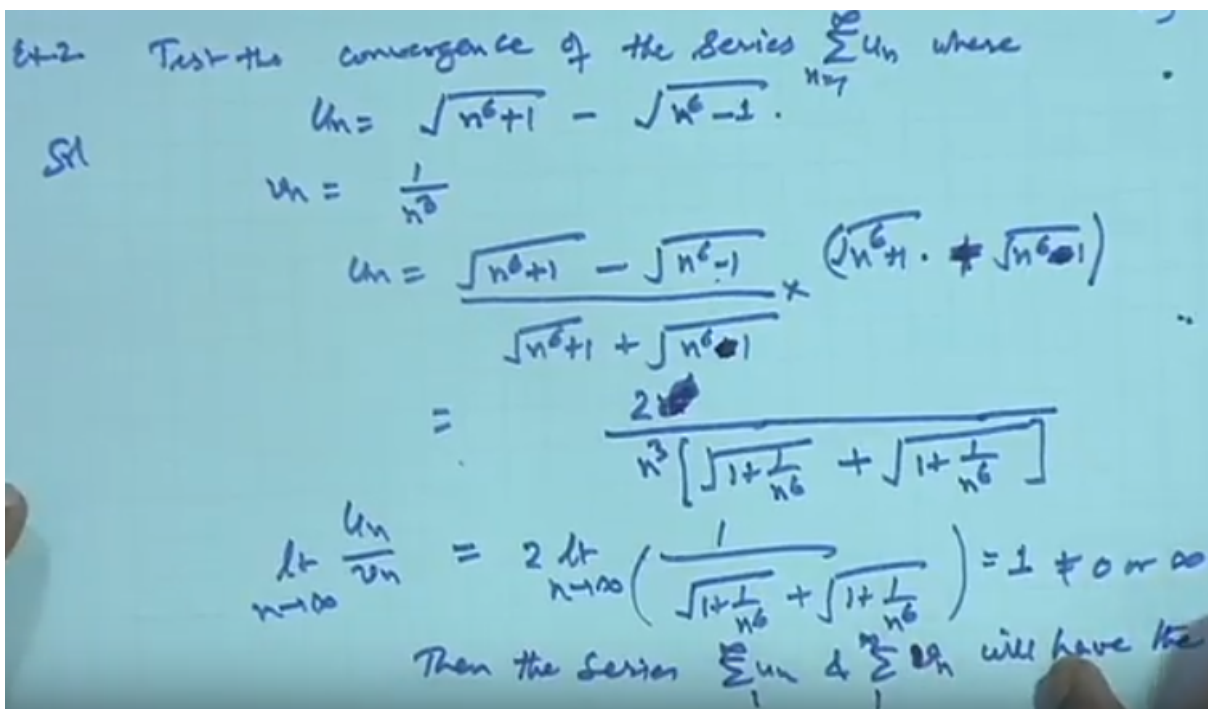 Ex-2. Test the convergence of the series $\sum_{n=1}^{\infty} u_n$ where
$u_n = \sqrt{n^6+1} - \sqrt{n^6-1}$.
Sol
$v_n = \frac{1}{n^3}$
$u_n = \frac{\sqrt{n^6+1} - \sqrt{n^6-1}}{\sqrt{n^6+1} + \sqrt{n^6-1}} \times (\sqrt{n^6+1} + \sqrt{n^6-1})$
$= \frac{2}{n^3[\sqrt{1+\frac{1}{n^6}} + \sqrt{1+\frac{1}{n^6}}]}$
$\underset{n\to\infty}{lt} \frac{u_n}{v_n} = 2 \underset{n\to\infty}{lt} (\frac{1}{\sqrt{1+\frac{1}{n^6}} + \sqrt{1+\frac{1}{n^6}}}) = 1 \neq 0 or \infty$
Then the series $\sum_{1}^{\infty} u_n$ & $\sum_{1}^{\infty} v_n$ will have the